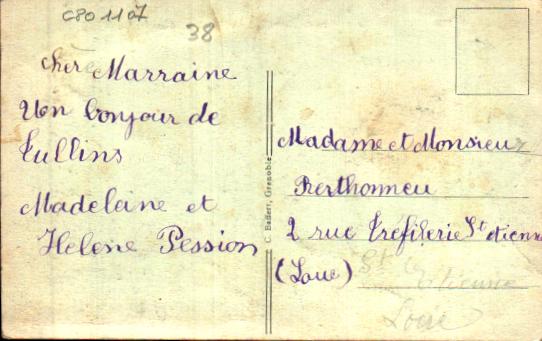 C80 1107
38
cher Marraine
Un bonjour de
Tullins
Madeleine et
Helene Pession
C. Baffert, Grenoble
Madame et Monsieur
Berthonneu
2 rue Tréfilerie St etienne
(Loire)
St Etienne
Loire